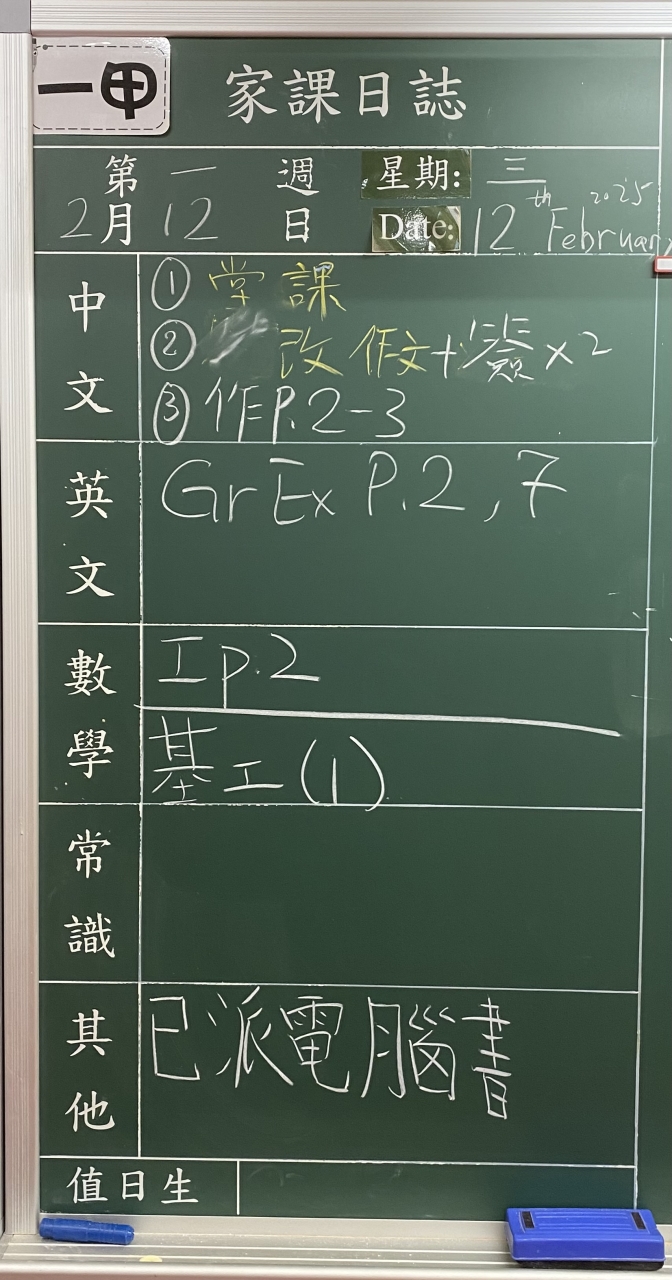 一甲
家課日誌
第一週 星期: 三
2月12日 Date: 12th February 2025
中文
① 堂課
② 改作文+簽×2
③ 作P.2-3
英文
Gr Ex P.2,7
數學
工p.2
基工(1)
常識
其他
已派電腦書
值日生